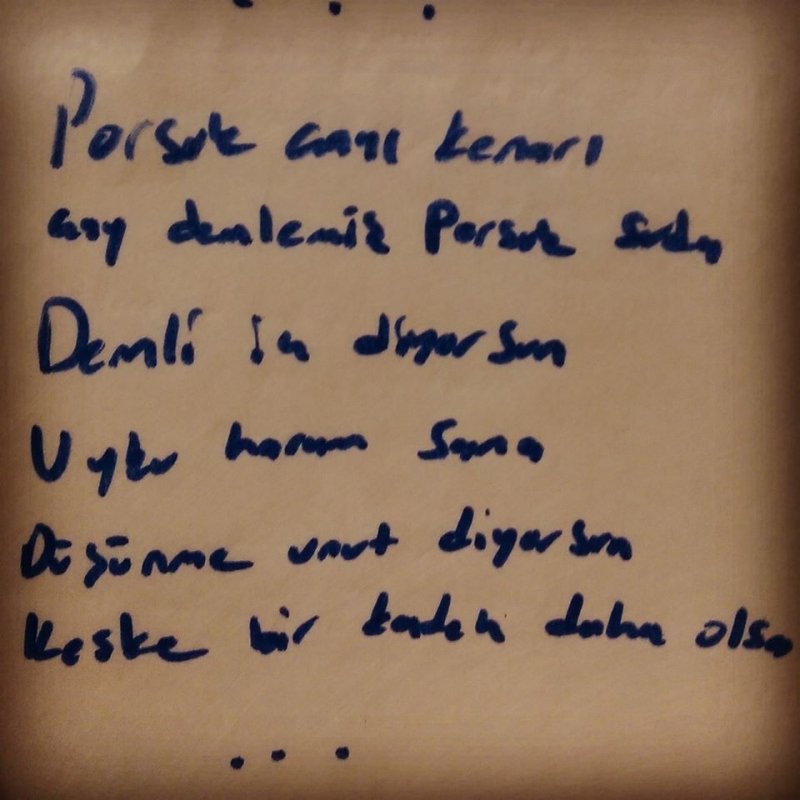 ...
Porsuk çayı kenarı
çay demlemiş Porsuk
Demli iç diyorsun
Uyku haram sana
Düşünme unut diyorsun
Keşke bir kadeh daha olsa
...